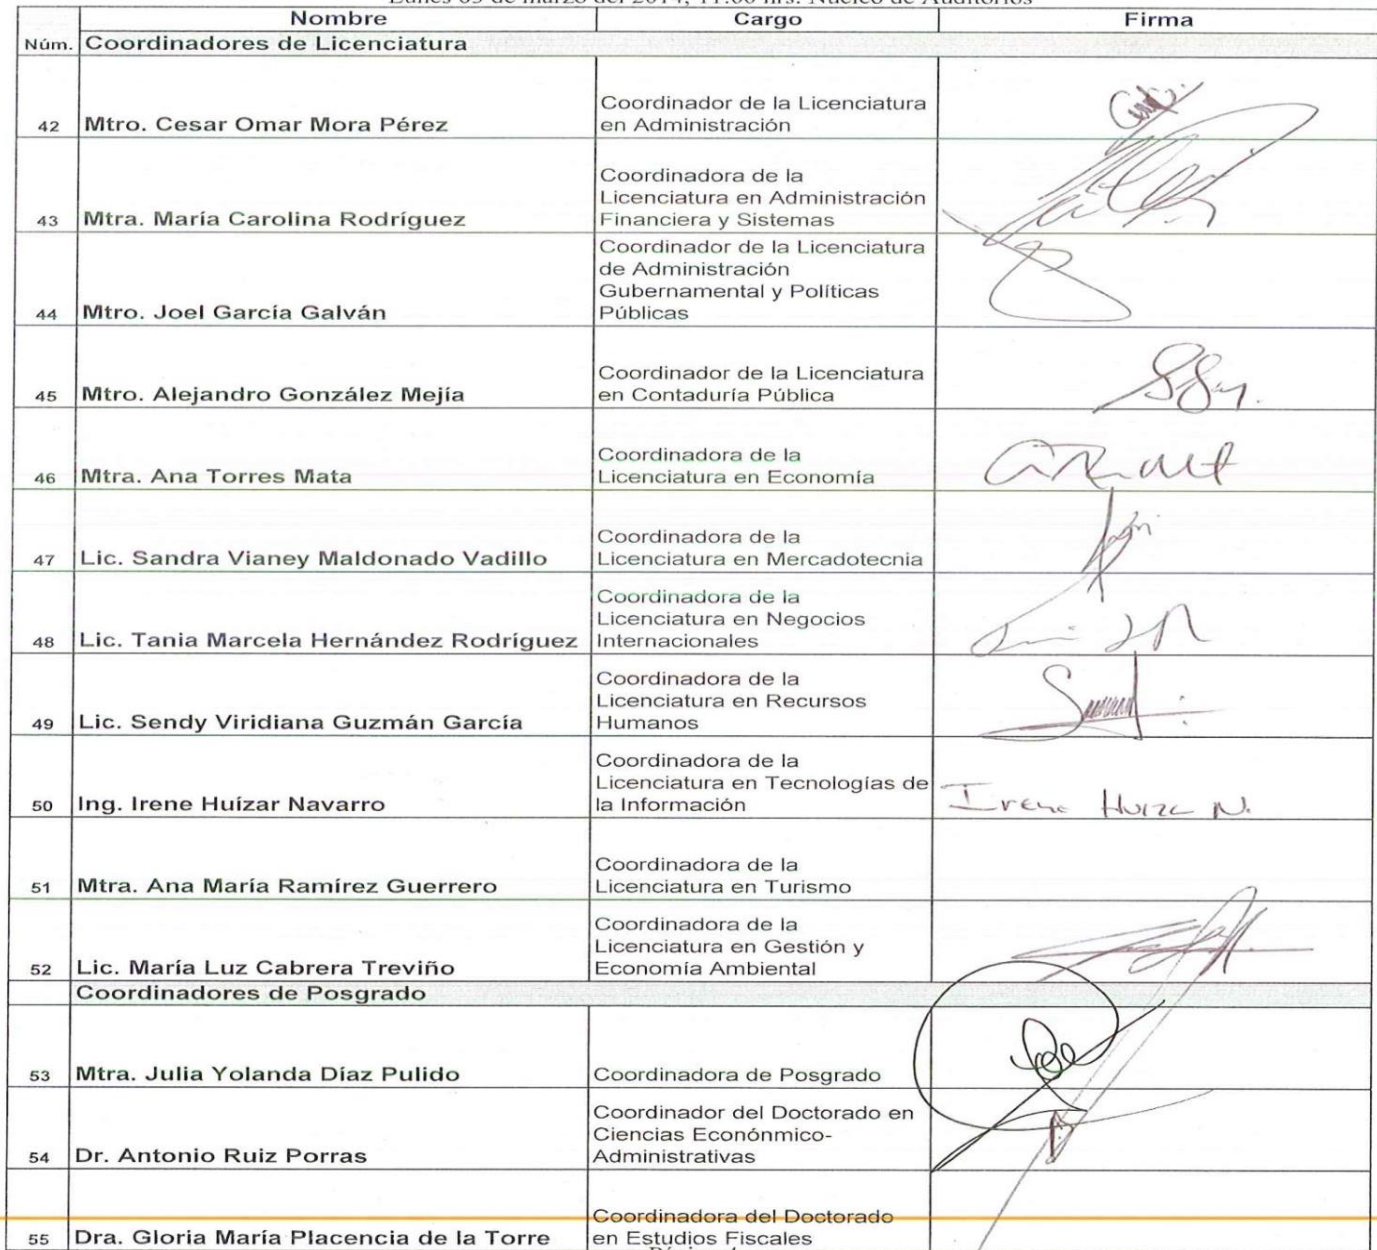 Lunes 03 de marzo del 2014, 11:00 hrs. Núcleo de Auditorios
Nombre Cargo Firma
Núm. Coordinadores de Licenciatura
42 Mtro. Cesar Omar Mora Pérez
Coordinador de la Licenciatura
en Administración
43 Mtra. María Carolina Rodríguez
Coordinadora de la
Licenciatura en Administración
Financiera y Sistemas
44 Mtro. Joel García Galván
Coordinador de la Licenciatura
de Administración
Gubernamental y Políticas
Públicas
45 Mtro. Alejandro González Mejía
Coordinador de la Licenciatura
en Contaduría Pública
46 Mtra. Ana Torres Mata
Coordinadora de la
Licenciatura en Economía
47 Lic. Sandra Vianey Maldonado Vadillo
Coordinadora de la
Licenciatura en Mercadotecnia
48 Lic. Tania Marcela Hernández Rodríguez
Coordinadora de la
Licenciatura en Negocios
Internacionales
49 Lic. Sendy Viridiana Guzmán García
Coordinadora de la
Licenciatura en Recursos
Humanos
50 Ing. Irene Huízar Navarro
Coordinadora de la
Licenciatura en Tecnologías de
la Información
Irene Huizar N.
51 Mtra. Ana María Ramírez Guerrero
Coordinadora de la
Licenciatura en Turismo
52 Lic. María Luz Cabrera Treviño
Coordinadora de la
Licenciatura en Gestión y
Economía Ambiental
Coordinadores de Posgrado
53 Mtra. Julia Yolanda Díaz Pulido
Coordinadora de Posgrado
54 Dr. Antonio Ruiz Porras
Coordinador del Doctorado en
Ciencias Econónmico-
Administrativas
55 Dra. Gloria María Placencia de la Torre
Coordinadora del Doctorado
en Estudios Fiscales